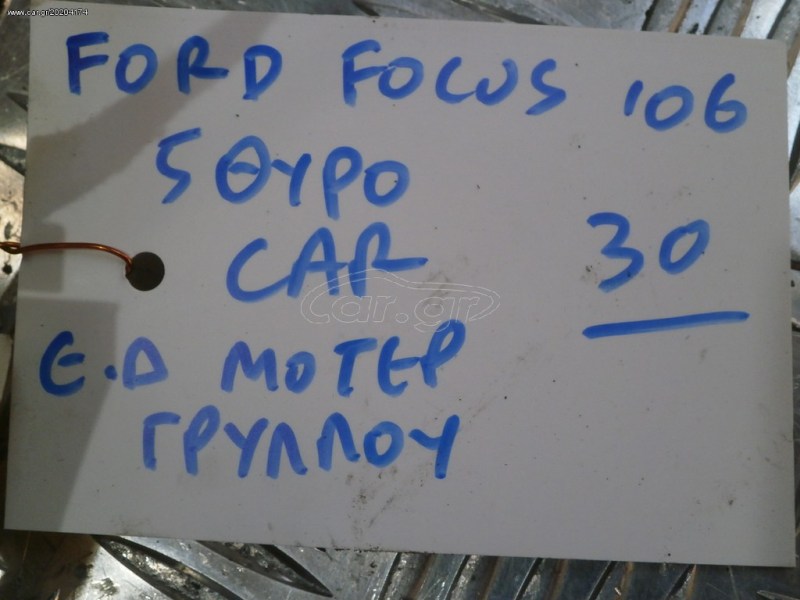 www.car.gr/20204174
FORD FOCUS '06
5ΘΥΡΟ
CAR 30
Ε.Δ ΜΟΤΕΡ
ΓΡΥΛΛΟΥ
car.gr